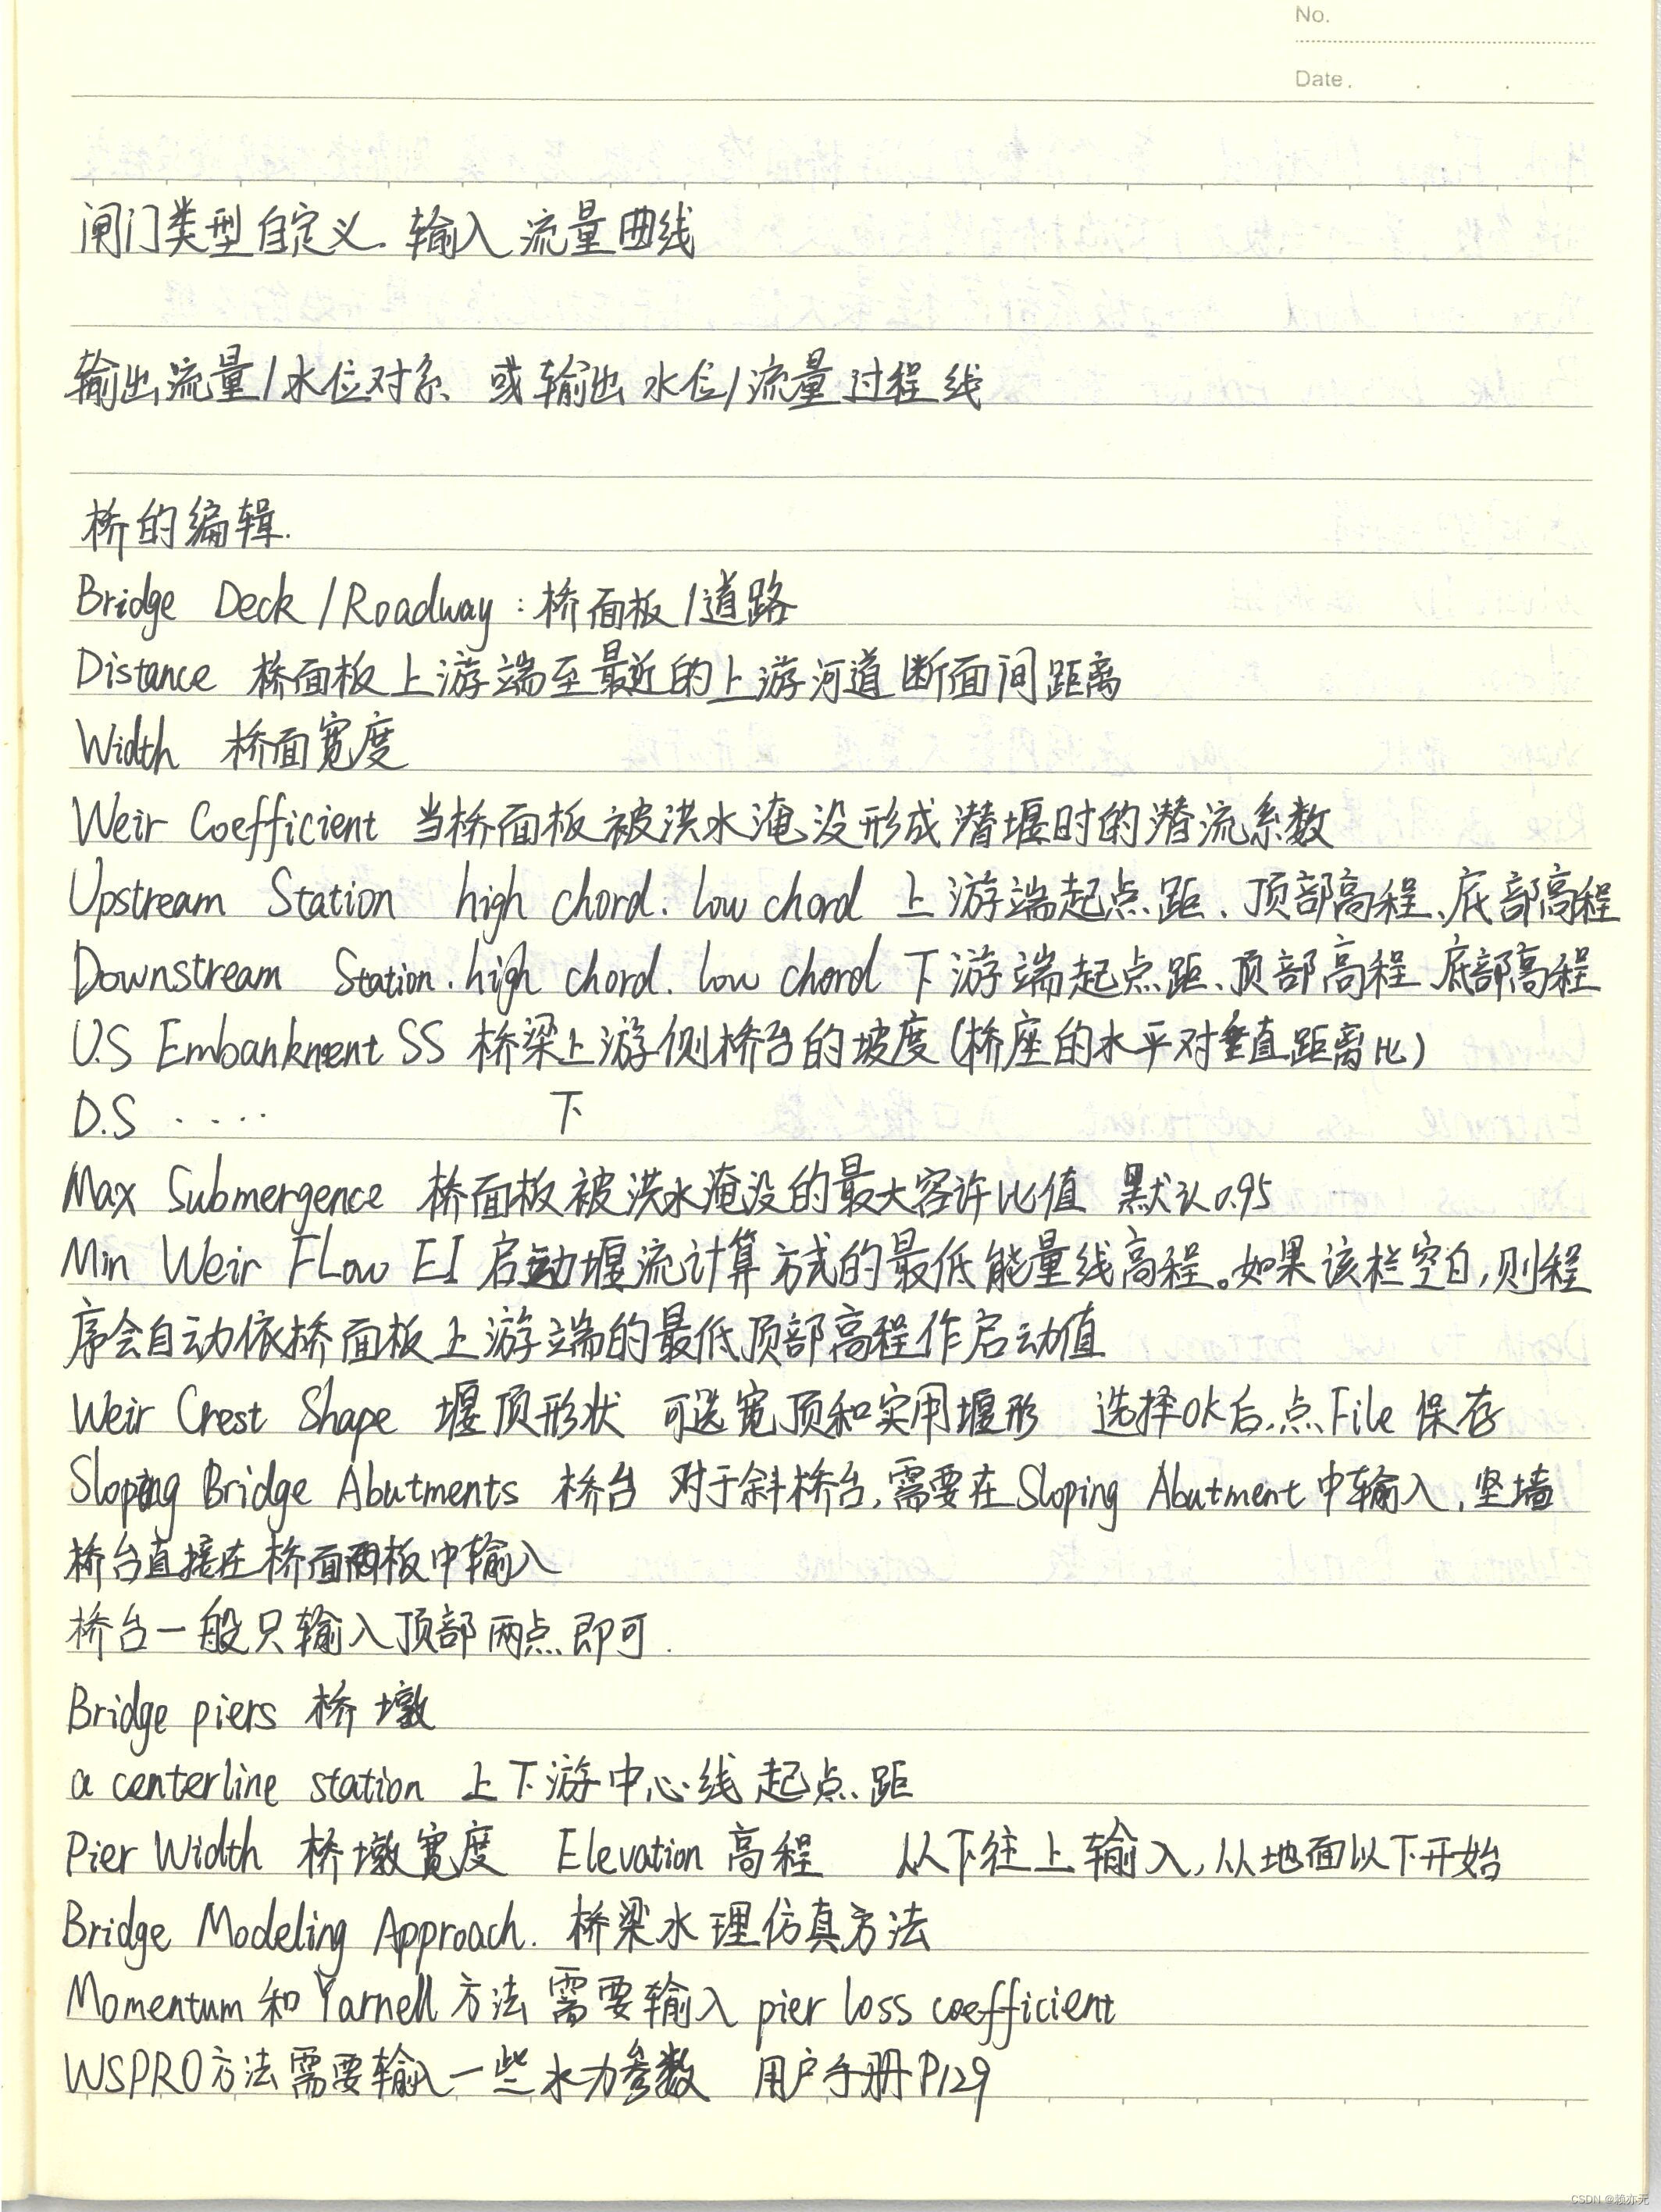 No.
Date.
闸门类型自定义.输入流量曲线
输出流量/水位对系 或输出水位/流量过程线
桥的编辑.
Bridge Deck/Roadway:桥面板/道路
Distance 桥面板上游端至最近的上游河道断面间距离
Width 桥面宽度
Weir Coefficient 当桥面板被洪水淹没形成潜堰时的潜流系数
Upstream Station high chord. low chord 上游端起点距、顶部高程、底部高程
Downstream Station. high chord. low chord 下游端起点距、顶部高程、底部高程
U.S Embankment SS 桥梁上游侧桥台的坡度(桥座的水平对垂直距离比)
D.S ..... 下
Max Submergence 桥面板被洪水淹没的最大容许比值 默认0.95
Min Weir FLow EI 启动堰流计算方式的最低能量线高程。如果该栏空白,则程
序会自动依桥面板上游端的最低顶部高程作启动值
Weir Crest Shape 堰顶形状 可选宽顶和实用堰形 选择OK后,点File保存
Sloping Bridge Abutments 桥台 对于斜桥台,需要在Sloping Abutment中输入,坚墙
桥台直接在桥面板中输入
桥台一般只输入顶部两点即可.
Bridge piers 桥墩
a centerline station 上下游中心线起点距
Pier Width 桥墩宽度 Elevation 高程 从下往上输入,从地面以下开始
Bridge Modeling Approach. 桥梁水理仿真方法
Momentum和Yarnell方法需要输入pier loss coefficient
WSPRO方法需要输入一些水力参数 用户手册P129
CSDN @赖亦无